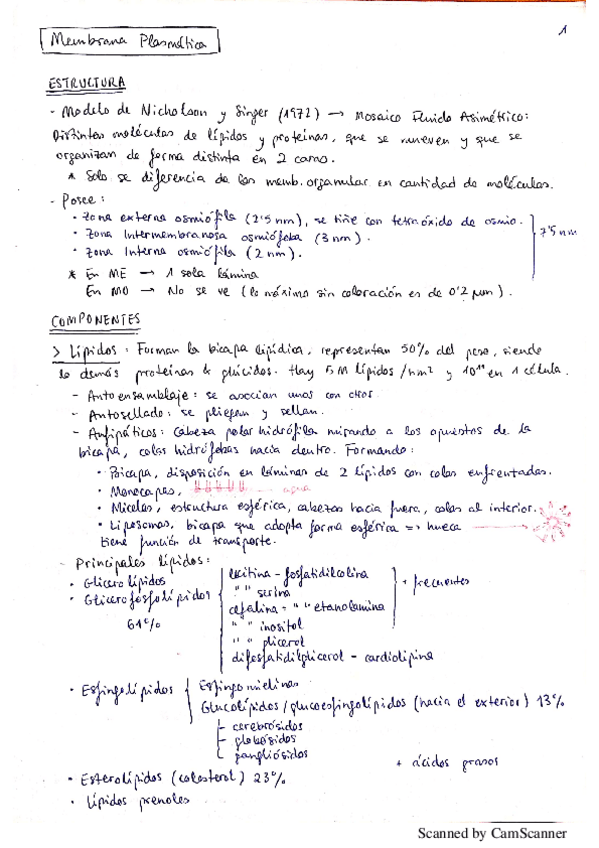 1
Membrana Plasmática
ESTRUCTURA
- Modelo de Nicholson y Singer (1972) → Mosaico Fluido Asimétrico:
Distintas moléculas de lípidos y proteínas, que se mueven y que se
organizan de forma distinta en 2 caras.
* Solo se diferencia de las memb. organular en cantidad de moléculas.
- Posee:
• Zona externa osmiófila (2'5 nm), se tiñe con tetraóxido de osmio.
• Zona Intermembranosa osmiófoba (3 nm).
• Zona Interna osmiófila (2 nm).
7'5 nm
* En ME → 1 sola lámina
En MO → No se ve (lo máximo sin coloración es de 0'2 μm).
COMPONENTES
> Lípidos: Forman la bicapa lipídica, representan 50% del peso, siendo
lo demás proteínas & glúcidos. Hay 5M lípidos/nm² y 10¹¹ en 1 célula.
- Autoensamblaje: se asocian unos con otros.
- Autosellado: se pliegan y sellan.
- Anfipáticos: Cabeza polar hidrófila mirando a los opuestos de la
bicapa, colas hidrófobas hacia dentro. Formando:
• Bicapa, disposición en láminas de 2 lípidos con colas enfrentadas.
• Monocapas, agua
• Micelas, estructura esférica, cabezas hacia fuera, colas al interior.
• Liposomas, bicapa que adopta forma esférica => hueca →
tiene función de transporte.
- Principales lípidos:
• Glicerolípidos
• Glicerofosfolípidos
61%
lecitina - fosfatidilcolina
" " serina
cefalina = " " etanolamina
" " inositol
" " glicerol
difosfatidilglicerol - cardiolipina
+ frecuentes
• Esfingolípidos
Esfingomielinas
Glucolípidos/glucoesfingolípidos (hacia el exterior) 13%
- cerebrósidos
- globósidos
- gangliósidos
+ ácidos grasos
• Esterolípidos (colesterol) 23%
• Lípidos prenoles
Scanned by CamScanner